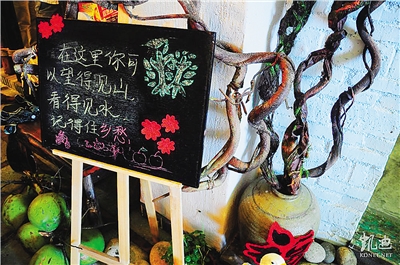 在这里你可
以望得见山
看得见水
记得住乡愁
凯迪
KDNET.NET